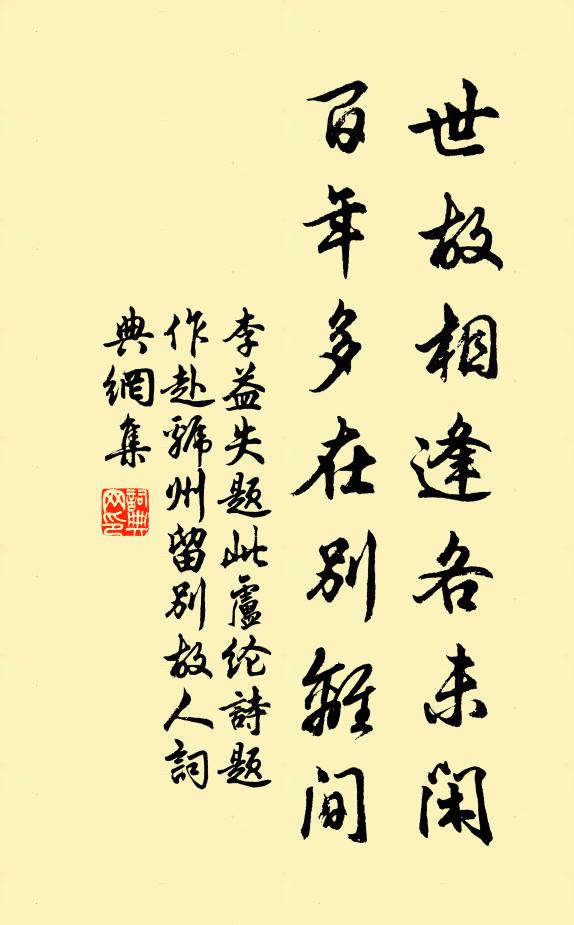 世故相逢各未閑
百年多在別離間
李益失题此盧纶詩题
作赴虢州留別故人詞
典網集
詞典网印